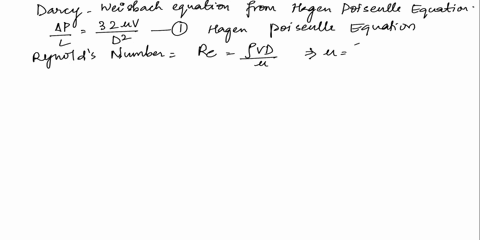 Darcy - Weisbach equation from Hagen Poiseulle Equation.
ΔP/L = 32 μV/D² — ① Hagen Poiseulle Equation
Reynold's Number = Re = ρVD/μ ⇒ μ =